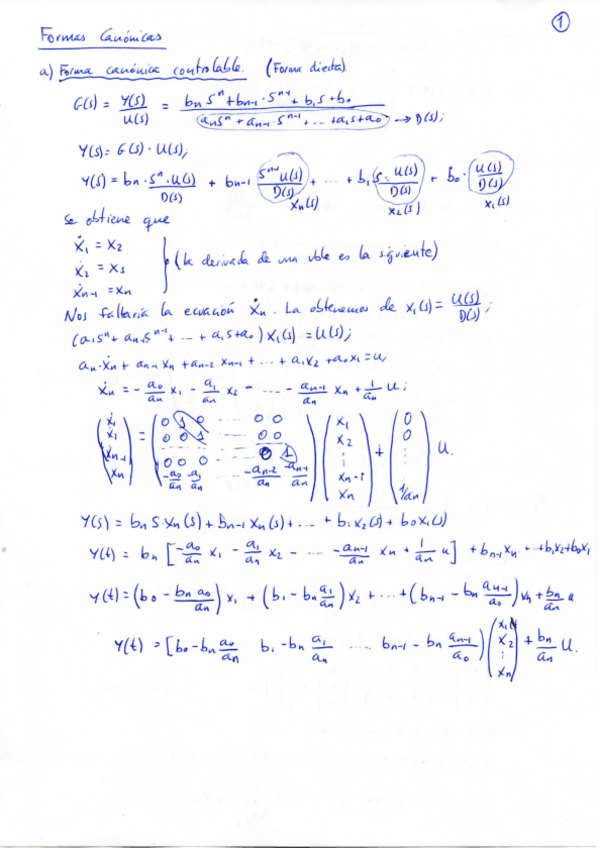 1
Formas Canónicas
a) Forma canónica controlable. (Forma directa)
G(s) = Y(s)/U(s) = (bn s^n + bn-1 · s^n-1 + b1 s + b0) / (an s^n + an-1 · s^n-1 + ... + a1 s + a0) → D(s);
Y(s) = G(s) · U(s);
Y(s) = bn · s^n · U(s)/D(s) + bn-1 s^n-1 U(s)/D(s) + ... + b1 s · U(s)/D(s) + b0 · U(s)/D(s)
Xn(s) X2(s) X1(s)
Se obtiene que
ẋ1 = x2
ẋ2 = x3 } (la derivada de una vble es la siguiente)
ẋn-1 = xn
Nos faltaría la ecuación ẋn. La obtenemos de x1(s) = U(s)/D(s);
(a1 s^n + an-1 s^n-1 + ... + a1 s + a0) x1(s) = U(s);
an · ẋn + an-1 xn + an-2 xn-1 + ... + a1 x2 + a0 x1 = u;
ẋn = - a0/an x1 - a1/an x2 - ... - an-1/an xn + 1/an u;
(ẋ1 ẋ2 ẋn-1 ẋn) = (0 1 0 ... 0 0 / 0 0 1 ... 0 0 / 0 0 0 ... 0 1 / -a0/an -a1/an ... -an-2/an -an-1/an) (x1 x2 ⋮ xn-1 xn) + (0 0 ⋮ 1/an) u.
Y(s) = bn s · xn(s) + bn-1 xn(s) + ... + b1 x2(s) + b0 x1(s)
Y(t) = bn [-a0/an x1 - a1/an x2 - ... - an-1/an xn + 1/an u] + bn-1 xn + ... + b1 x2 + b0 x1
Y(t) = (b0 - bn a0/an) x1 + (b1 - bn a1/an) x2 + ... + (bn-1 - bn an-1/a0) xn + bn/an u
Y(t) = [b0 - bn a0/an b1 - bn a1/an ... bn-1 - bn an-1/a0) (x1 x2 ⋮ xn) + bn/an u.